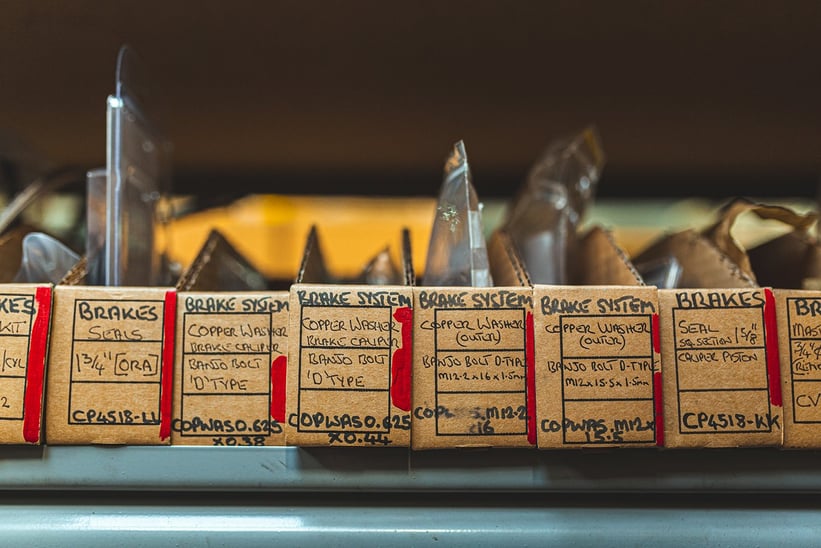 KES
KIT'
/CYL
2
BRAKES
SEALS
1 3/4" [ORA]
CP4518-LL
BRAKE SYSTEM
COPPER WASHER
BRAKE CALIPER
BANJO BOLT
'D'TYPE
COPWAS0.625
X0.38
BRAKE SYSTEM
COPPER WASHER
BRAKE CALIPER
BANJO BOLT
'D'TYPE
COPWAS0.625
X0.44
BRAKE SYSTEM
COPPER WASHER
(OUTER)
BANJO BOLT D-TYPE
M12-2x16x1.5mm
M12-2
x16
BRAKE SYSTEM
COPPER WASHER
(OUTER)
BANJO BOLT D-TYPE
M12x15.5x1.5mm
COPWAS.M12x
15.5
BRAKES
SEAL 1 5/8"
SQ.SECTION
CALIPER PISTON
CP4518-KK
BR
MAS
3/4"
CV